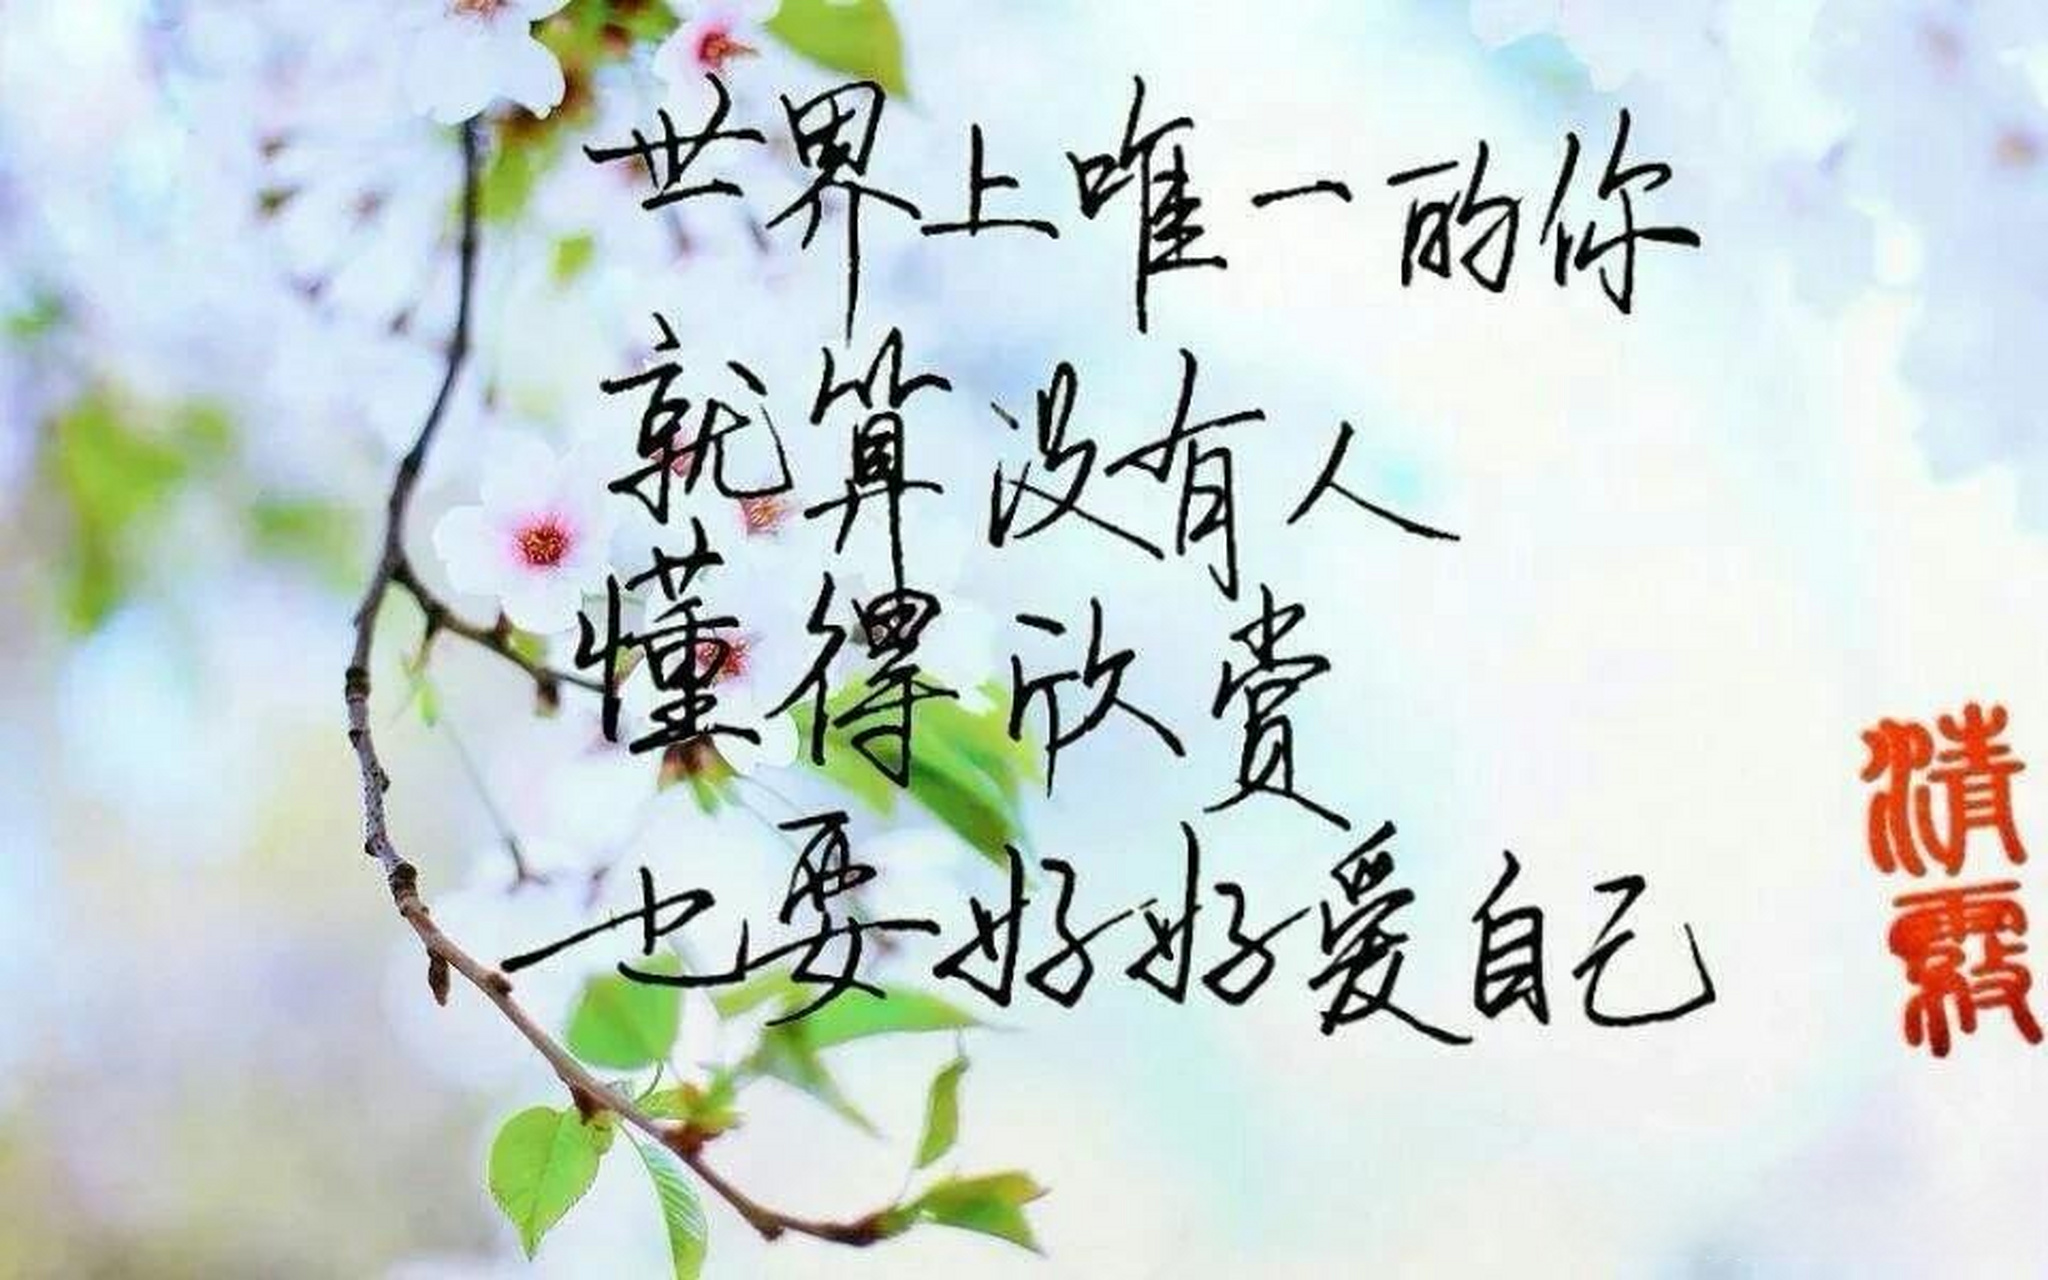 世界上唯一的你
就算没有人
懂得欣赏
也要好好爱自己
清霞